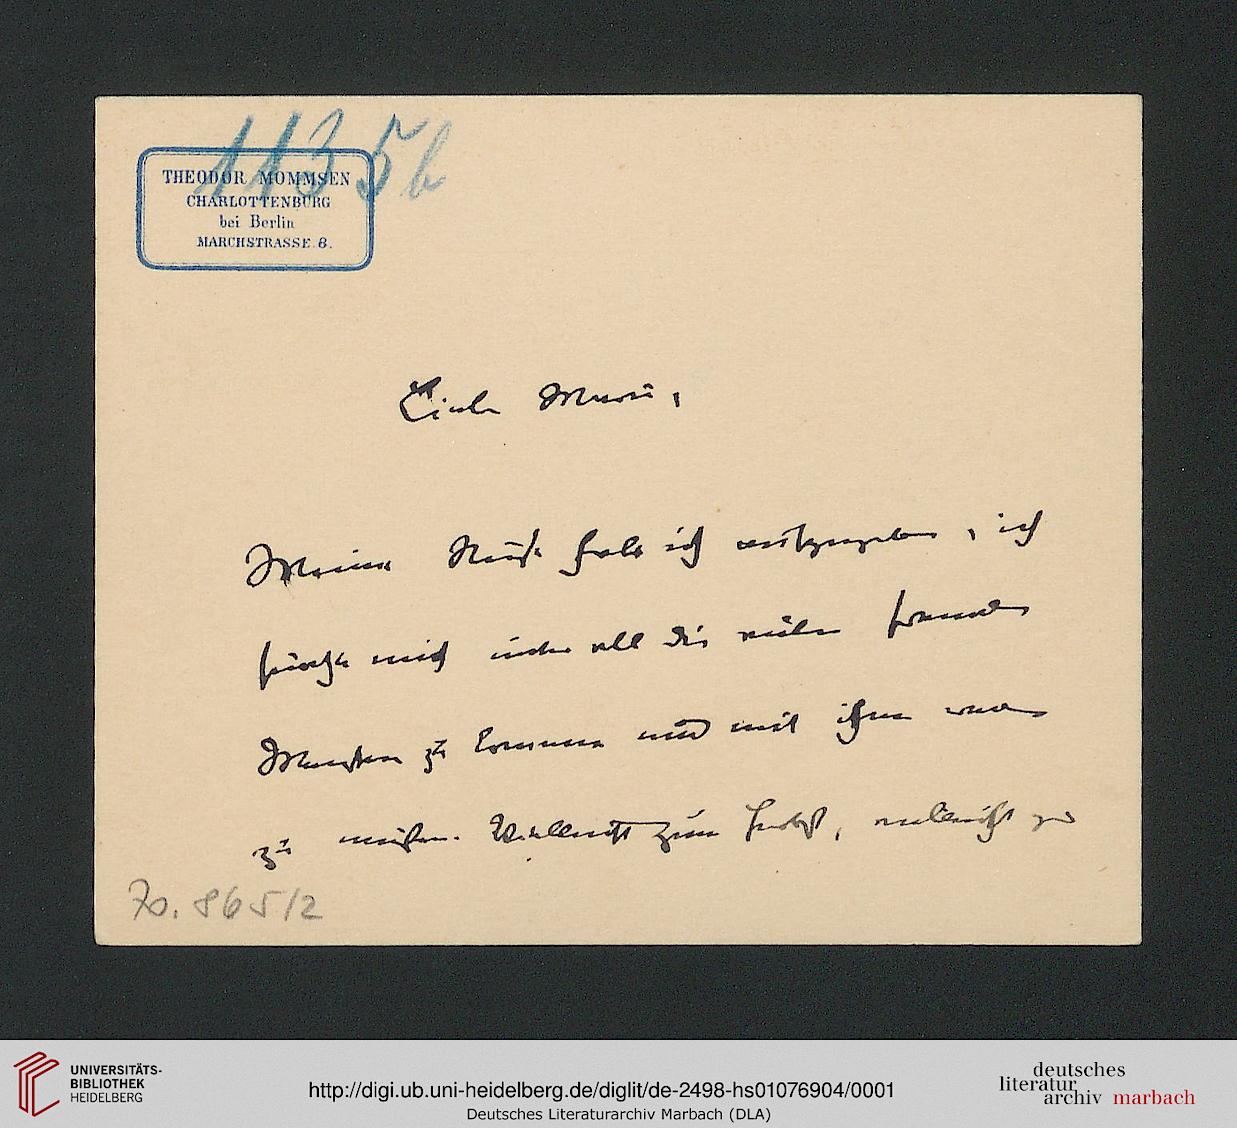 1135b
THEODOR MOMMSEN
CHARLOTTENBURG
bei Berlin
MARCHSTRASSE 8.
Liebe Marie,
Meine Reise habe ich aufgegeben, ich
fürchte mich unter all die vielen fremden
Menschen zu kommen und mit ihnen
zu müssen. Vielleicht zum Herbst, vielleicht
Zo. 865/2
UNIVERSITÄTS-
BIBLIOTHEK
HEIDELBERG
http://digi.ub.uni-heidelberg.de/diglit/de-2498-hs01076904/0001
Deutsches Literaturarchiv Marbach (DLA)
deutsches
literatur
archiv marbach